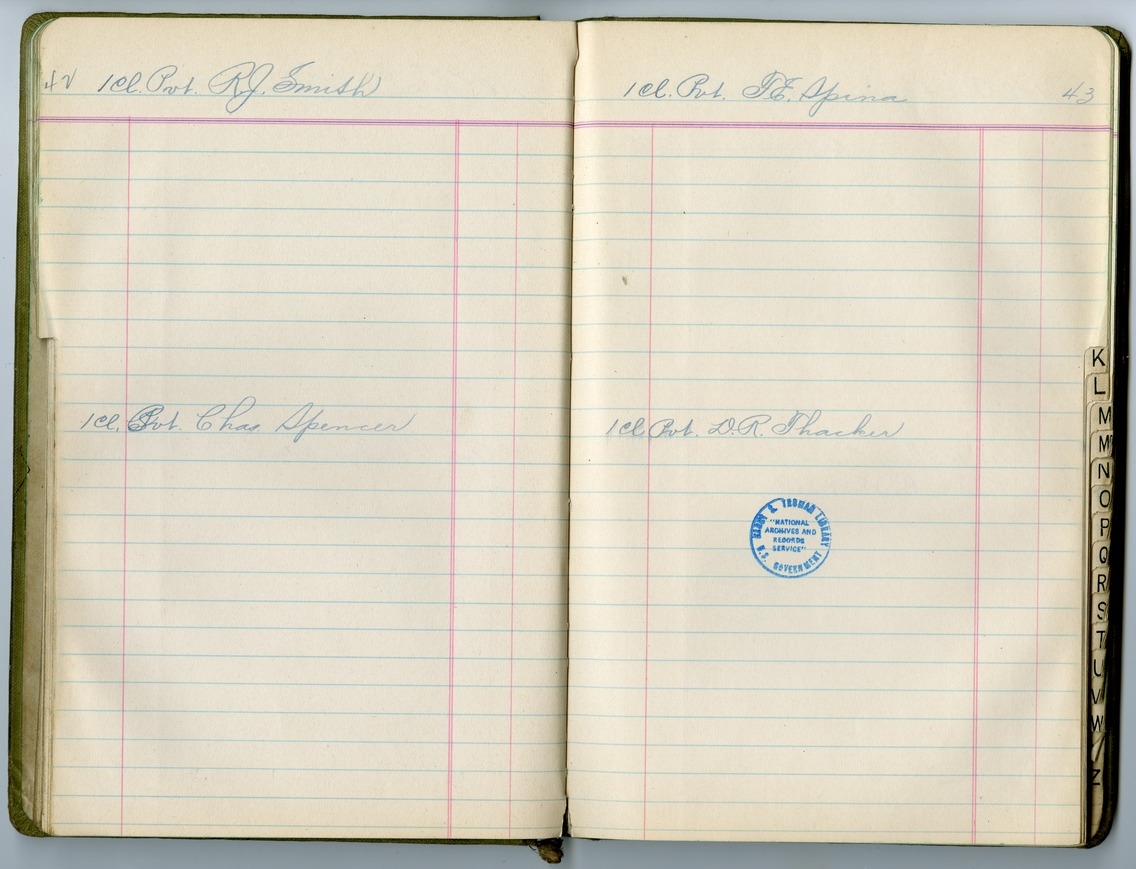 42 1 Cl. Pvt. R.J. Smith
1 Cl. Pvt. Chas Spencer
1 Cl. Pvt. F.E. Spina 43
1 Cl Pvt. D.R. Thacker
HARRY S. TRUMAN LIBRARY
"NATIONAL
ARCHIVES AND
RECORDS
SERVICE"
U.S. GOVERNMENT
K
L
M
Mc
N
O
P
Q
R
S
T
U
V
W
Z